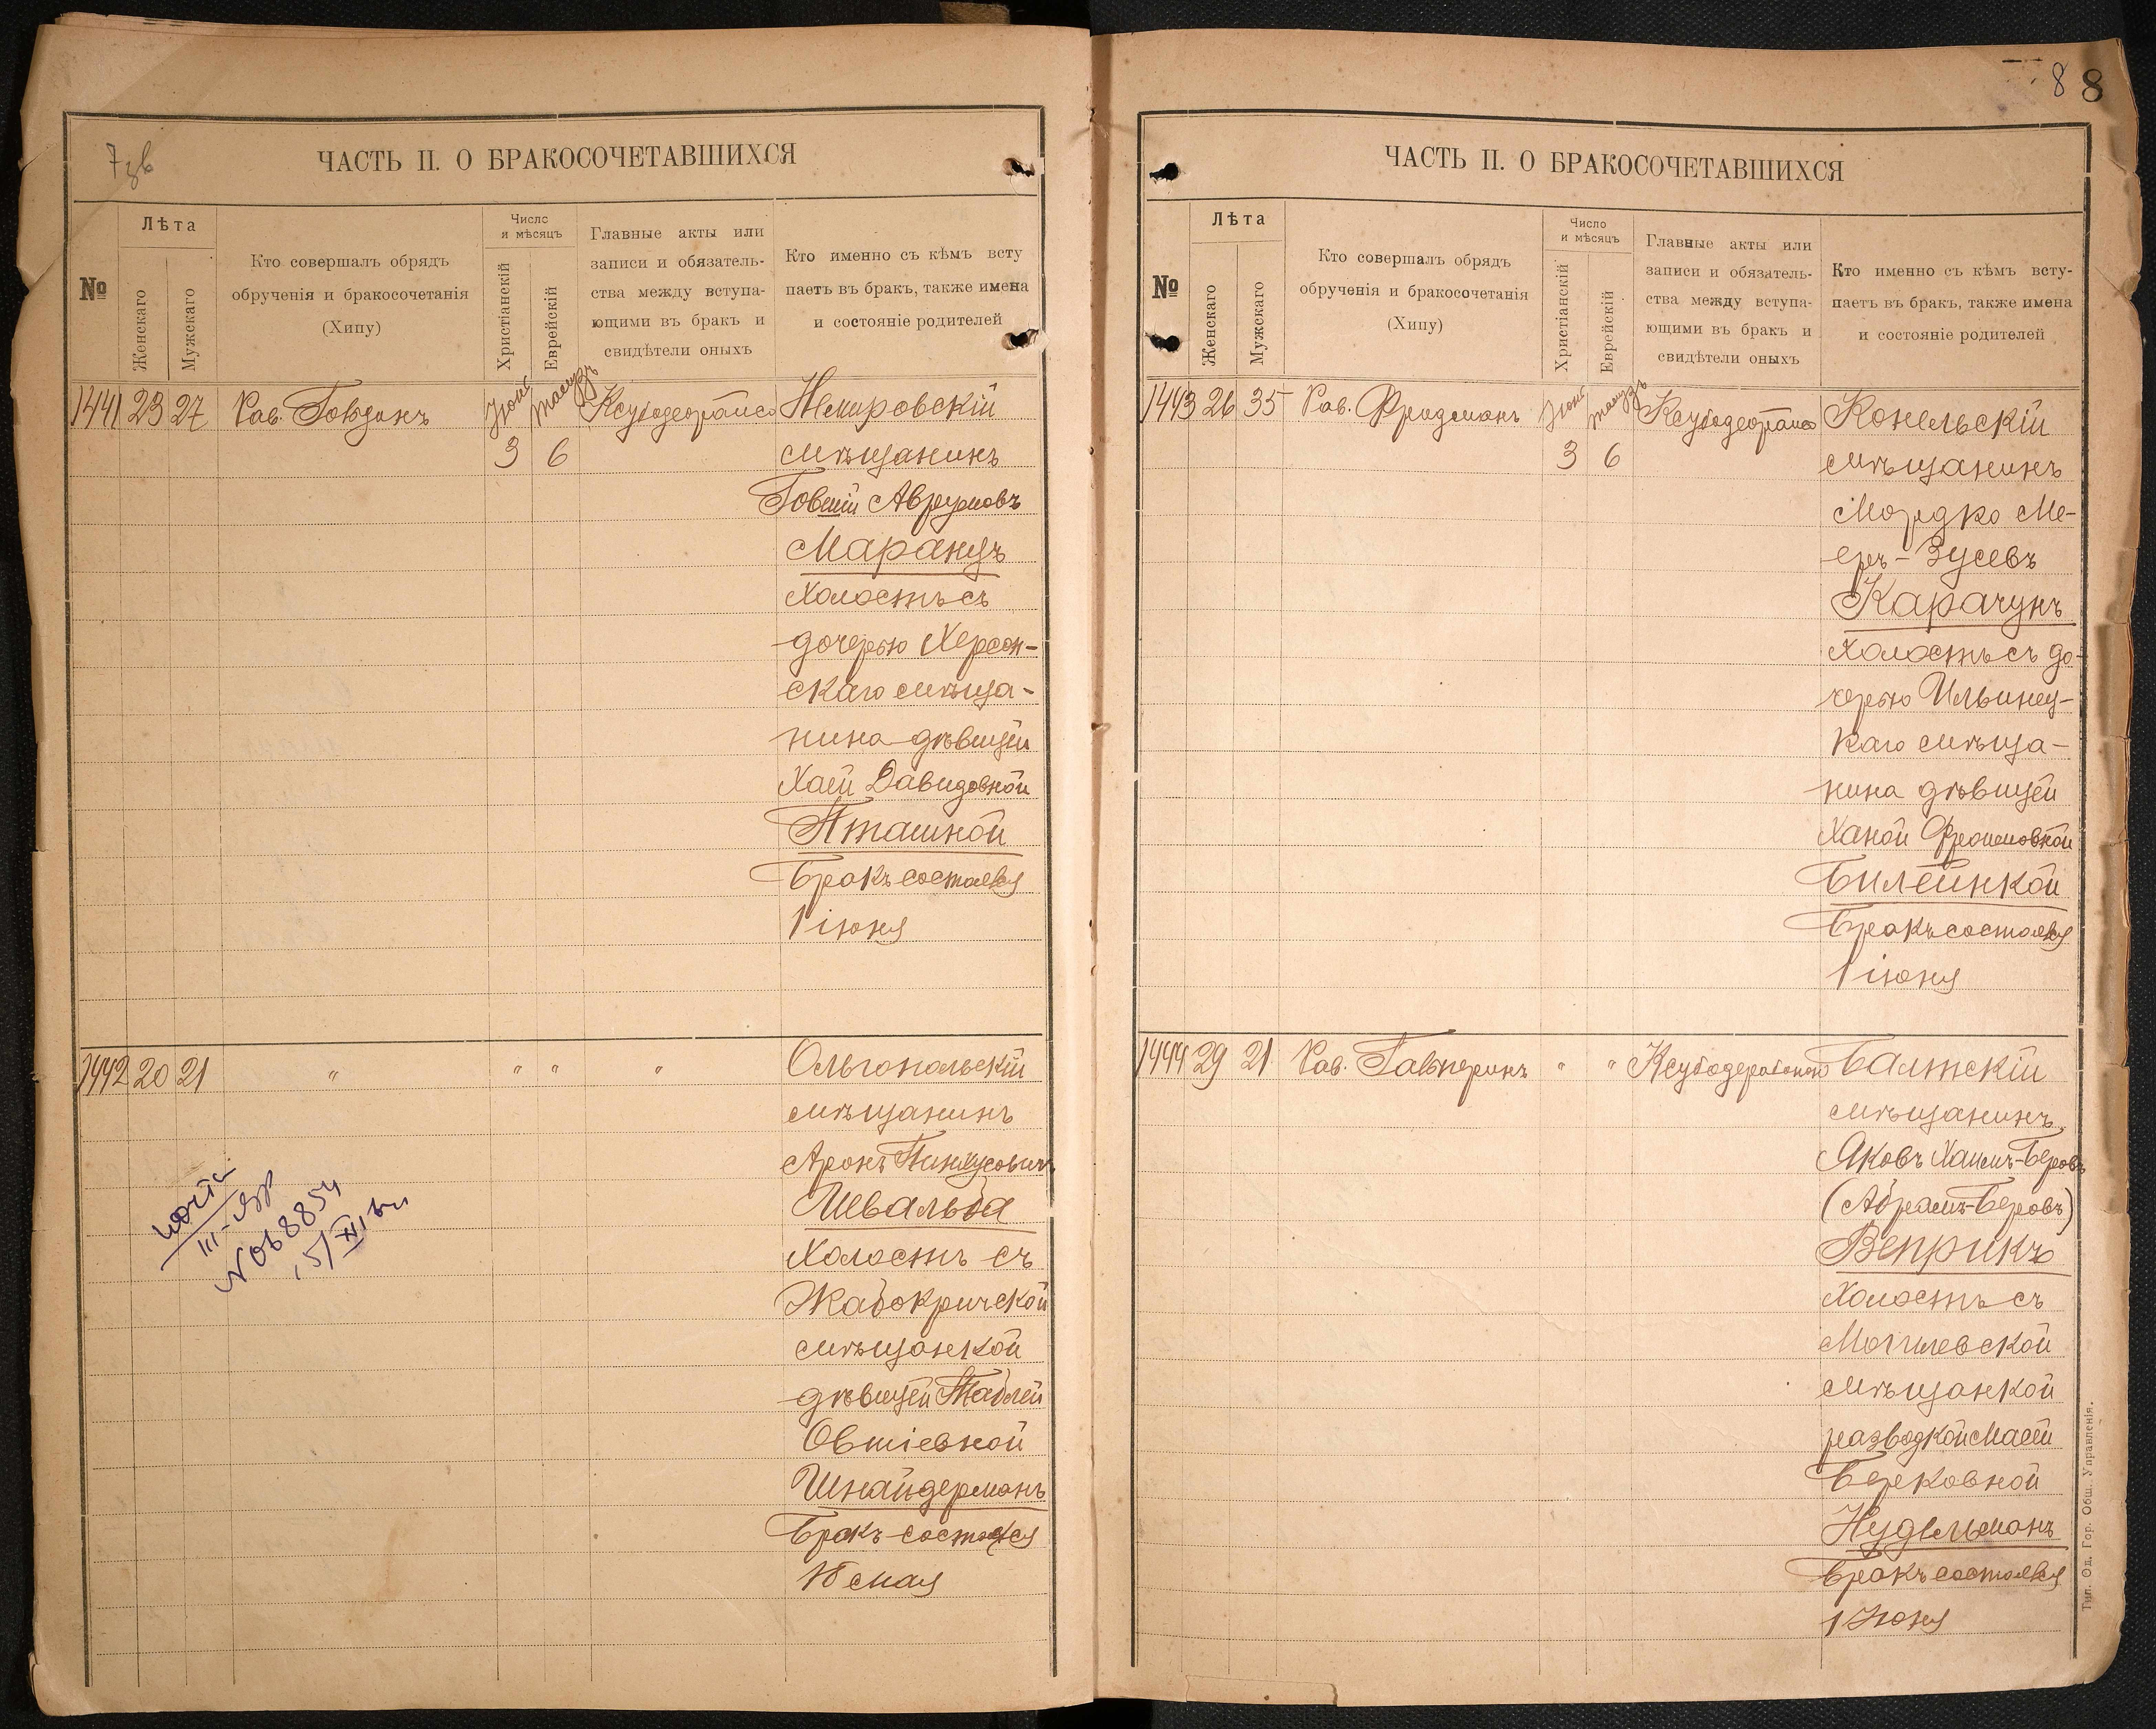 7 зв
ЧАСТЬ II. О БРАКОСОЧЕТАВШИХСЯ
№
Лѣта
Женскаго
Мужскаго
Кто совершалъ обрядъ
обрученія и бракосочетанія
(Хипу)
Число
и мѣсяцъ
Христіанскій
Еврейскій
Главные акты или
записи и обязатель-
ства между вступа-
ющими въ бракъ и
свидѣтели оныхъ
Кто именно съ кѣмъ всту
паетъ въ бракъ, также имена
и состояніе родителей
1441 23 27 Рав. Іюнь Тамузъ Немировскій
3 6 мѣщанинъ
Говшій Аврумовъ
Маранцъ
Холостъ съ
дочерью Херсон-
скаго мѣща-
нина дѣвицей
Хаей Давидовной
Пташной
Бракъ состоялся
1 іюня
1442 20 21 " " " " Ольгопольскій
мѣщанинъ
Аронъ Пинхусовичъ
Шевальба
Холостъ съ
Жабокричской
мѣщанкой
дѣвицей Таблей
Овшіевной
Шнайдерманъ
Бракъ состоялся
18 мая
III-
8854
15/XII
8 8
ЧАСТЬ II. О БРАКОСОЧЕТАВШИХСЯ
№
Лѣта
Женскаго
Мужскаго
Кто совершалъ обрядъ
обрученія и бракосочетанія
(Хипу)
Число
и мѣсяцъ
Христіанскій
Еврейскій
Главные акты или
записи и обязатель-
ства между вступа-
ющими въ бракъ и
свидѣтели оныхъ
Кто именно съ кѣмъ всту-
паетъ въ бракъ, также имена
и состояніе родителей
1443 26 35 Рав. Фридманъ Іюнь Тамузъ Конельскій
3 6 мѣщанинъ
Мордко Ме-
еръ-Зусевъ
Карачунъ
Холостъ съ до-
черью Ильинец-
каго мѣща-
нина дѣвицей
Ханой Фроимовной
Билейнкой
Бракъ состоялся
1 іюня
1444 29 21 Рав. Гальперинъ " " Балтскій
мѣщанинъ
Яковъ Хаимъ-Беровъ
(Абрамъ-Беровъ)
Веприкъ
Холостъ съ
Могилевской
мѣщанкой
разводкой Маей
Берковной
Нудельманъ
Бракъ состоялся
1 Іюня
Тип. Од. Гор. Общ. Управленія.